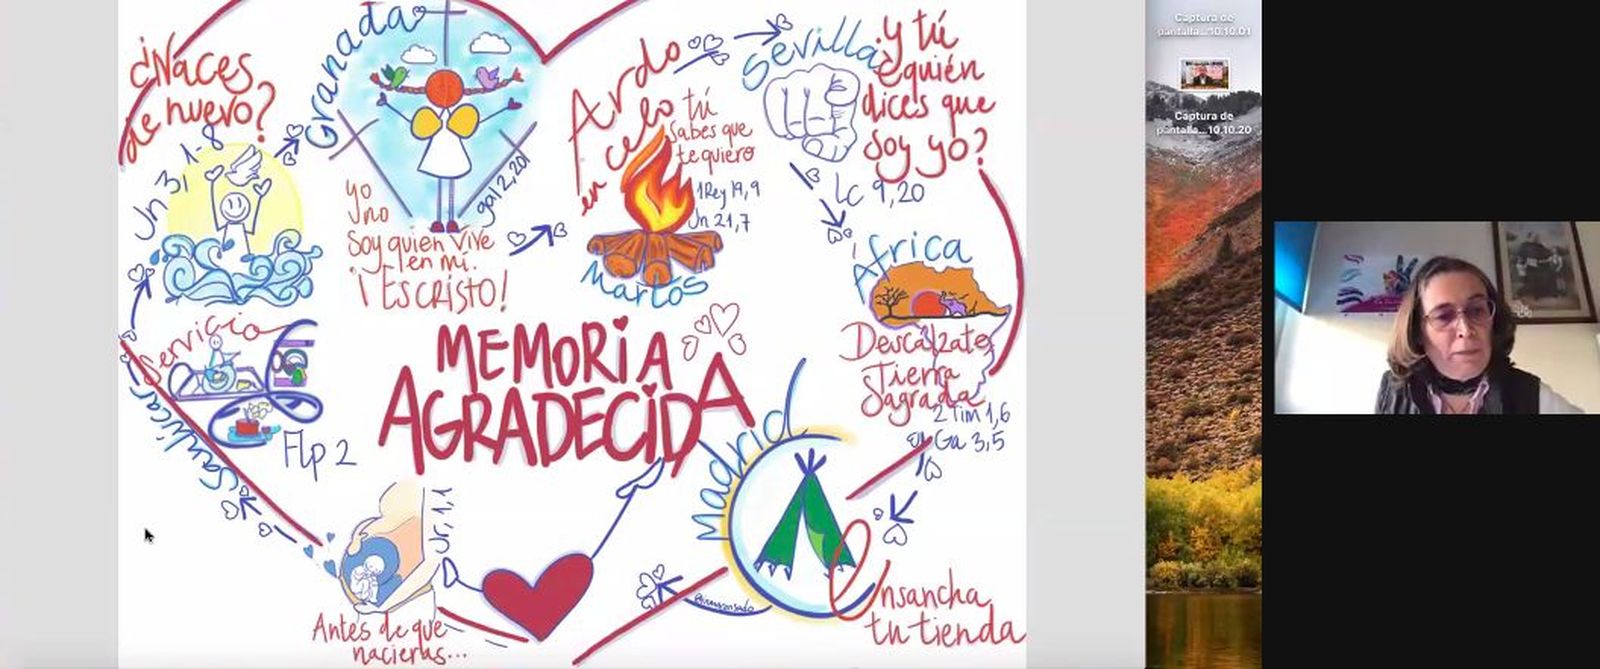 ¿Naces
de nuevo?
Jn 3, 1-8
Granada
yo
no
Soy quien vive
en mí.
¡Es CRISTO!
gal 2,20
Ardo
en celo
tú
sabes que
te quiero
1 Rey 19, 9
Jn 21,7
Martos
Sevilla
¿y tú
quién
dices que
soy yo?
Lc 9,20
África
Descálzate,
Tierra
Sagrada
2 Tim 1,6
Ga 3,5
Servicio
Flp 2
MEMORIA
AGRADECIDA
Madrid
Ensancha
tu tienda
Jr, 1,1
Antes de que
nacieras...
Captura de
pantalla...10.10.01
Captura de
pantalla...10.10.20